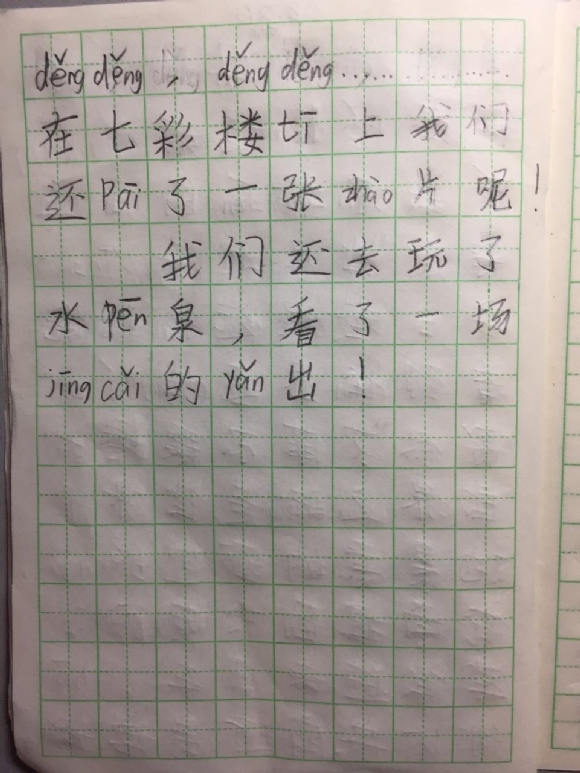 děng děng，děng děng……
在七彩楼tī上我们
还pāi了一张zhào片呢！
我们还去玩了
水pēn泉，看了一场
jīng cǎi的yǎn出！